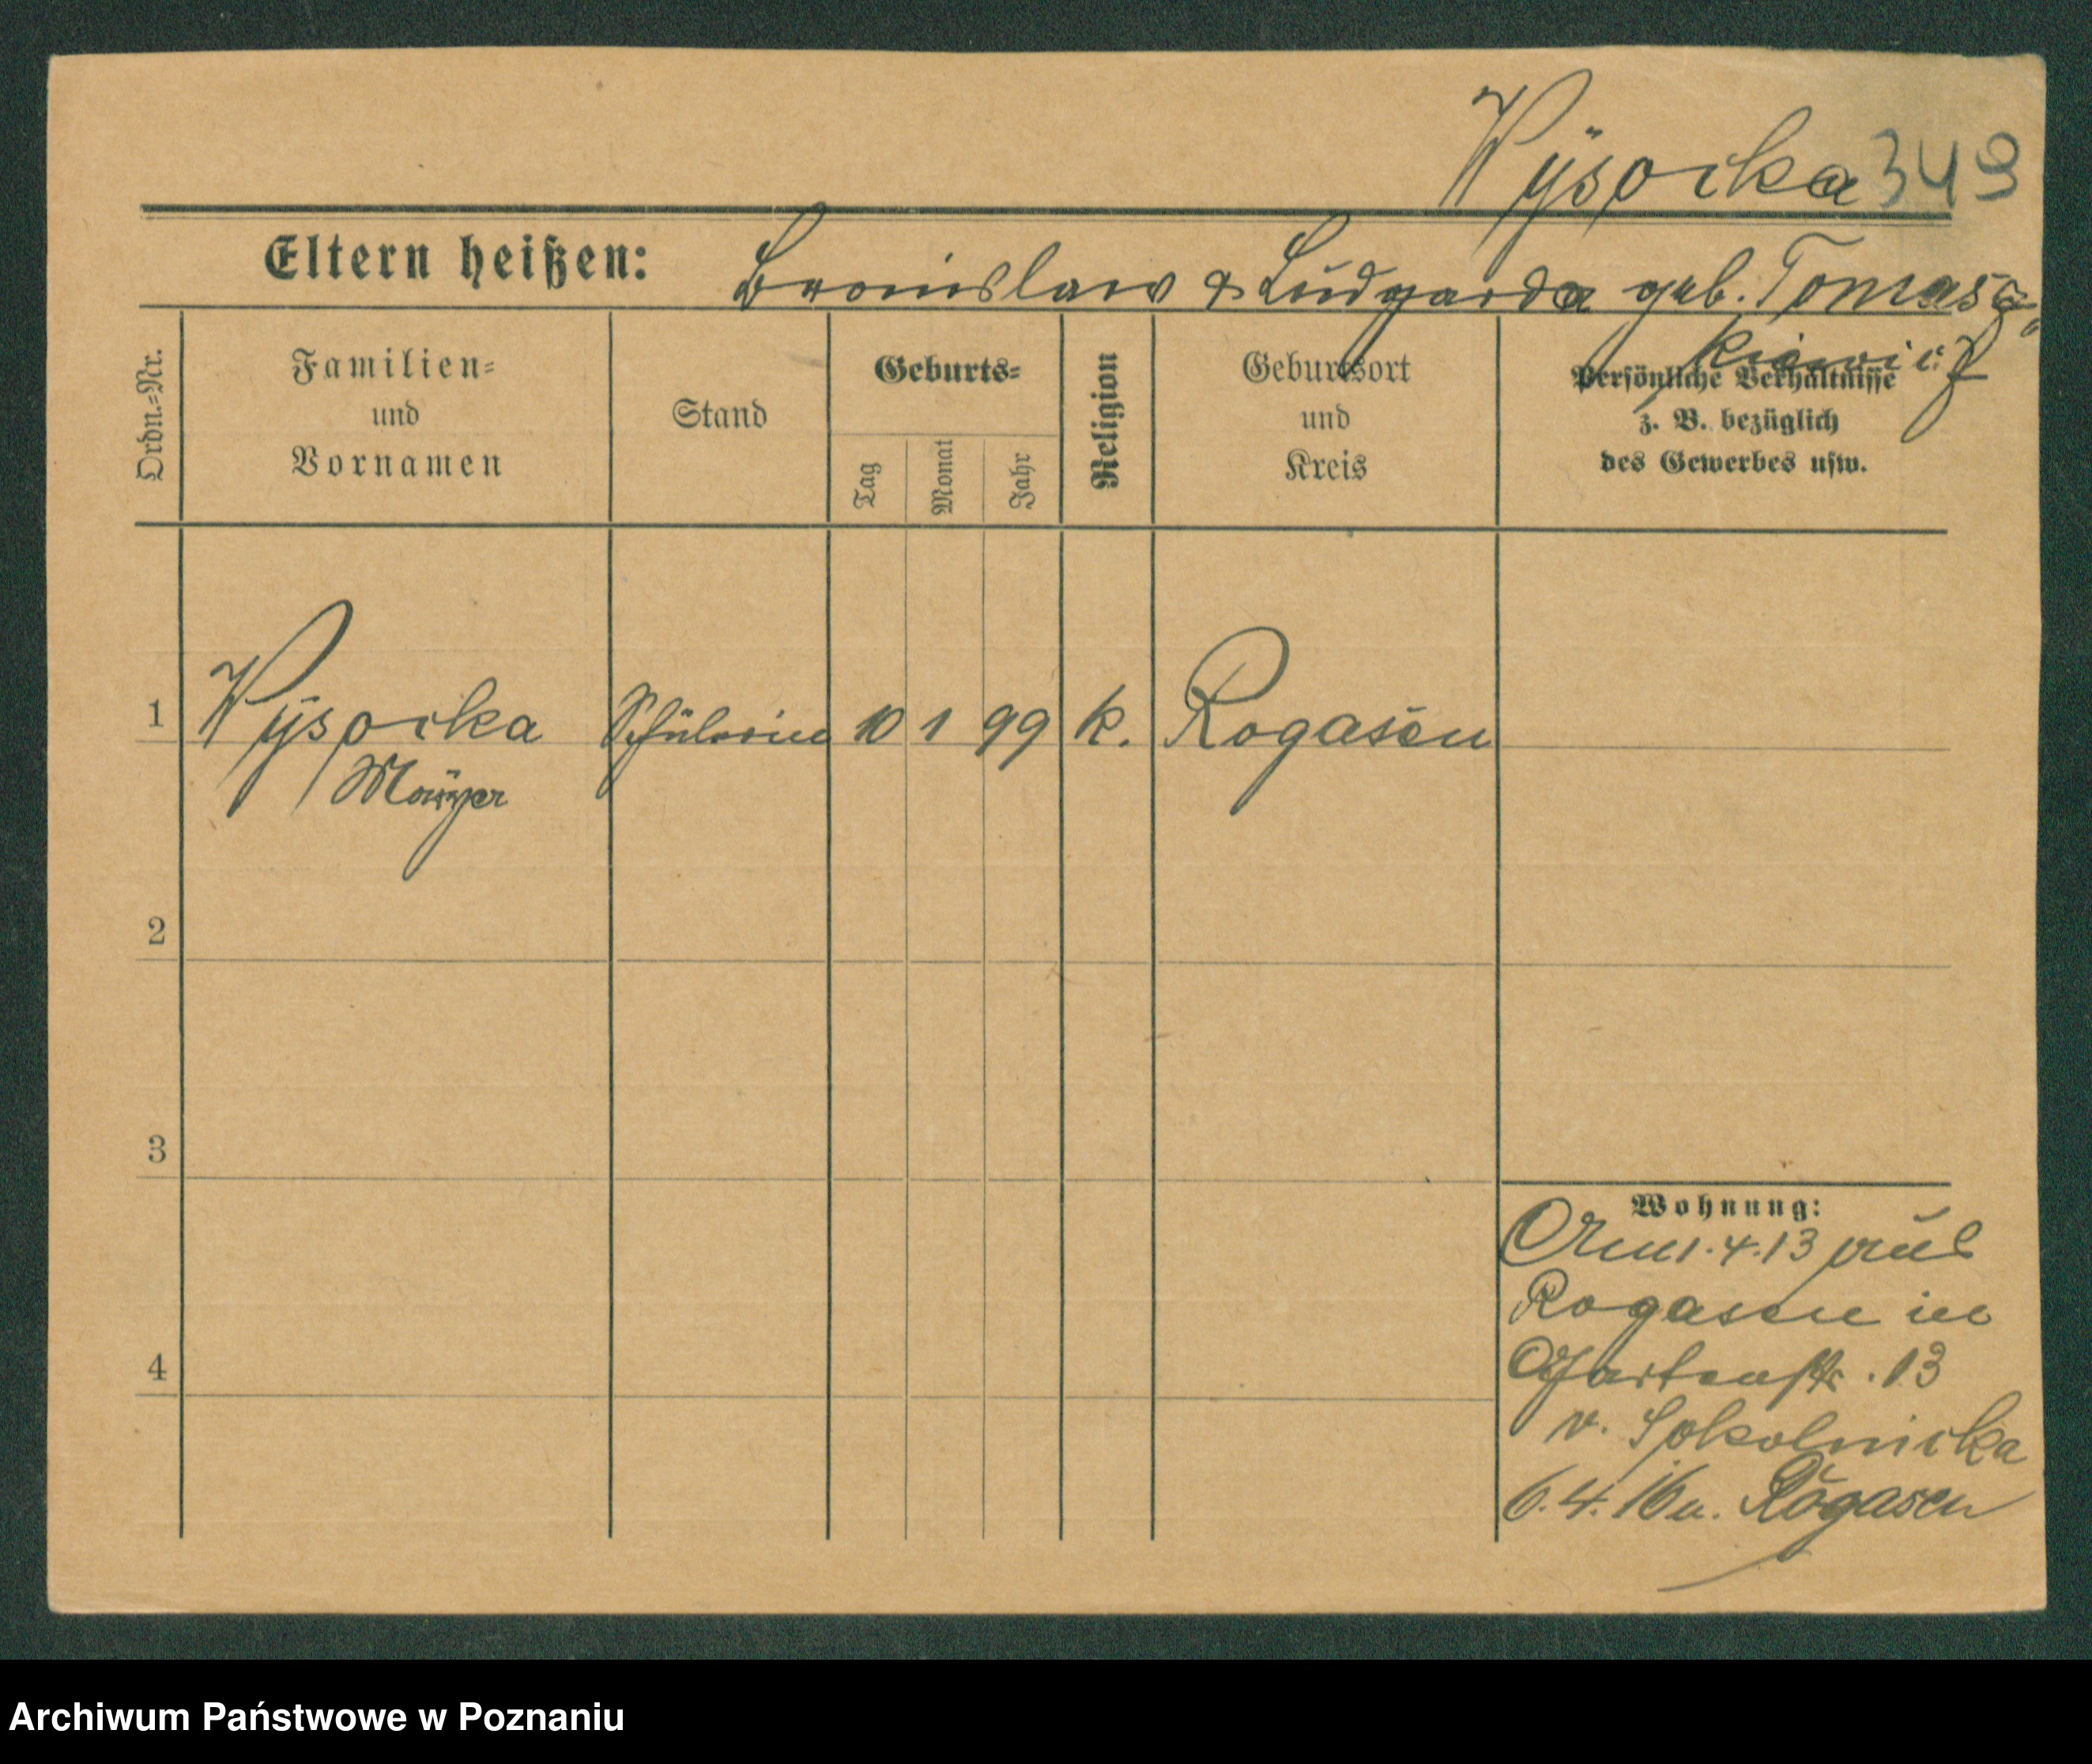 Wÿsocka 349
Eltern heißen: Bronislaw & Ludgarda geb. Tomasz-
kiewicz
Ordn.-Nr.
Familien-
und
Vornamen
Stand
Geburts-
Tag
Monat
Jahr
Religion
Geburtsort
und
Kreis
Persönliche Verhältnisse
z. B. bezüglich
des Gewerbes usw.
1 Wÿsocka Schülerin 10 1 99 k. Rogasen
2
3
4
Wohnung:
Am 1.4.13 aus
Rogasen in
Gartenstr. 13
v. Sokolnicka
6.4.16 n. Rogasen
Archiwum Państwowe w Poznaniu